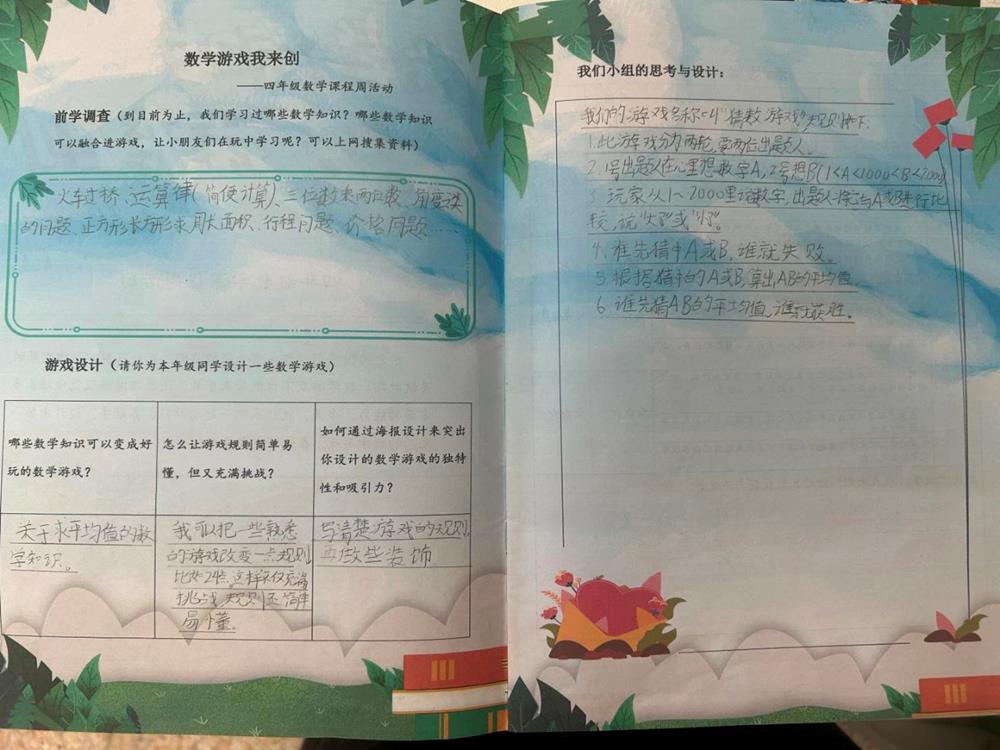 数学游戏我来创
——四年级数学课程周活动
前学调查（到目前为止，我们学习过哪些数学知识？哪些数学知识
可以融合进游戏，让小朋友们在玩中学习呢？可以上网搜集资料）
火车过桥、运算律(简便计算)、三位数乘两位数、角度
的问题、正方形长方形求周长面积、行程问题、价格问题……
游戏设计（请你为本年级同学设计一些数学游戏）
哪些数学知识可以变成好
玩的数学游戏？
怎么让游戏规则简单易
懂，但又充满挑战？
如何通过海报设计来突出
你设计的数学游戏的独特
性和吸引力？
关于求平均值的数
学知识。
我可以把一些熟悉
的游戏改变一点规则
比如24点。这样不仅充满
挑战 规则还简单
易懂。
写清楚游戏的规则，
再做些装饰
我们小组的思考与设计：
我们的游戏名称叫"猜数游戏"规则如下:
1.此游戏分为两轮，要两位出题人。
2.1号出题人在心里想数字A，2号想B(1<A<1000<B<2000)
3.玩家从1~2000里说数字，出题人将它与A或B进行比
较，说"大了"或"小了"。
4.谁先猜中A或B，谁就失败。
5.根据猜中的A或B，算出AB的平均值。
6.谁先猜AB的平均值，谁就获胜。